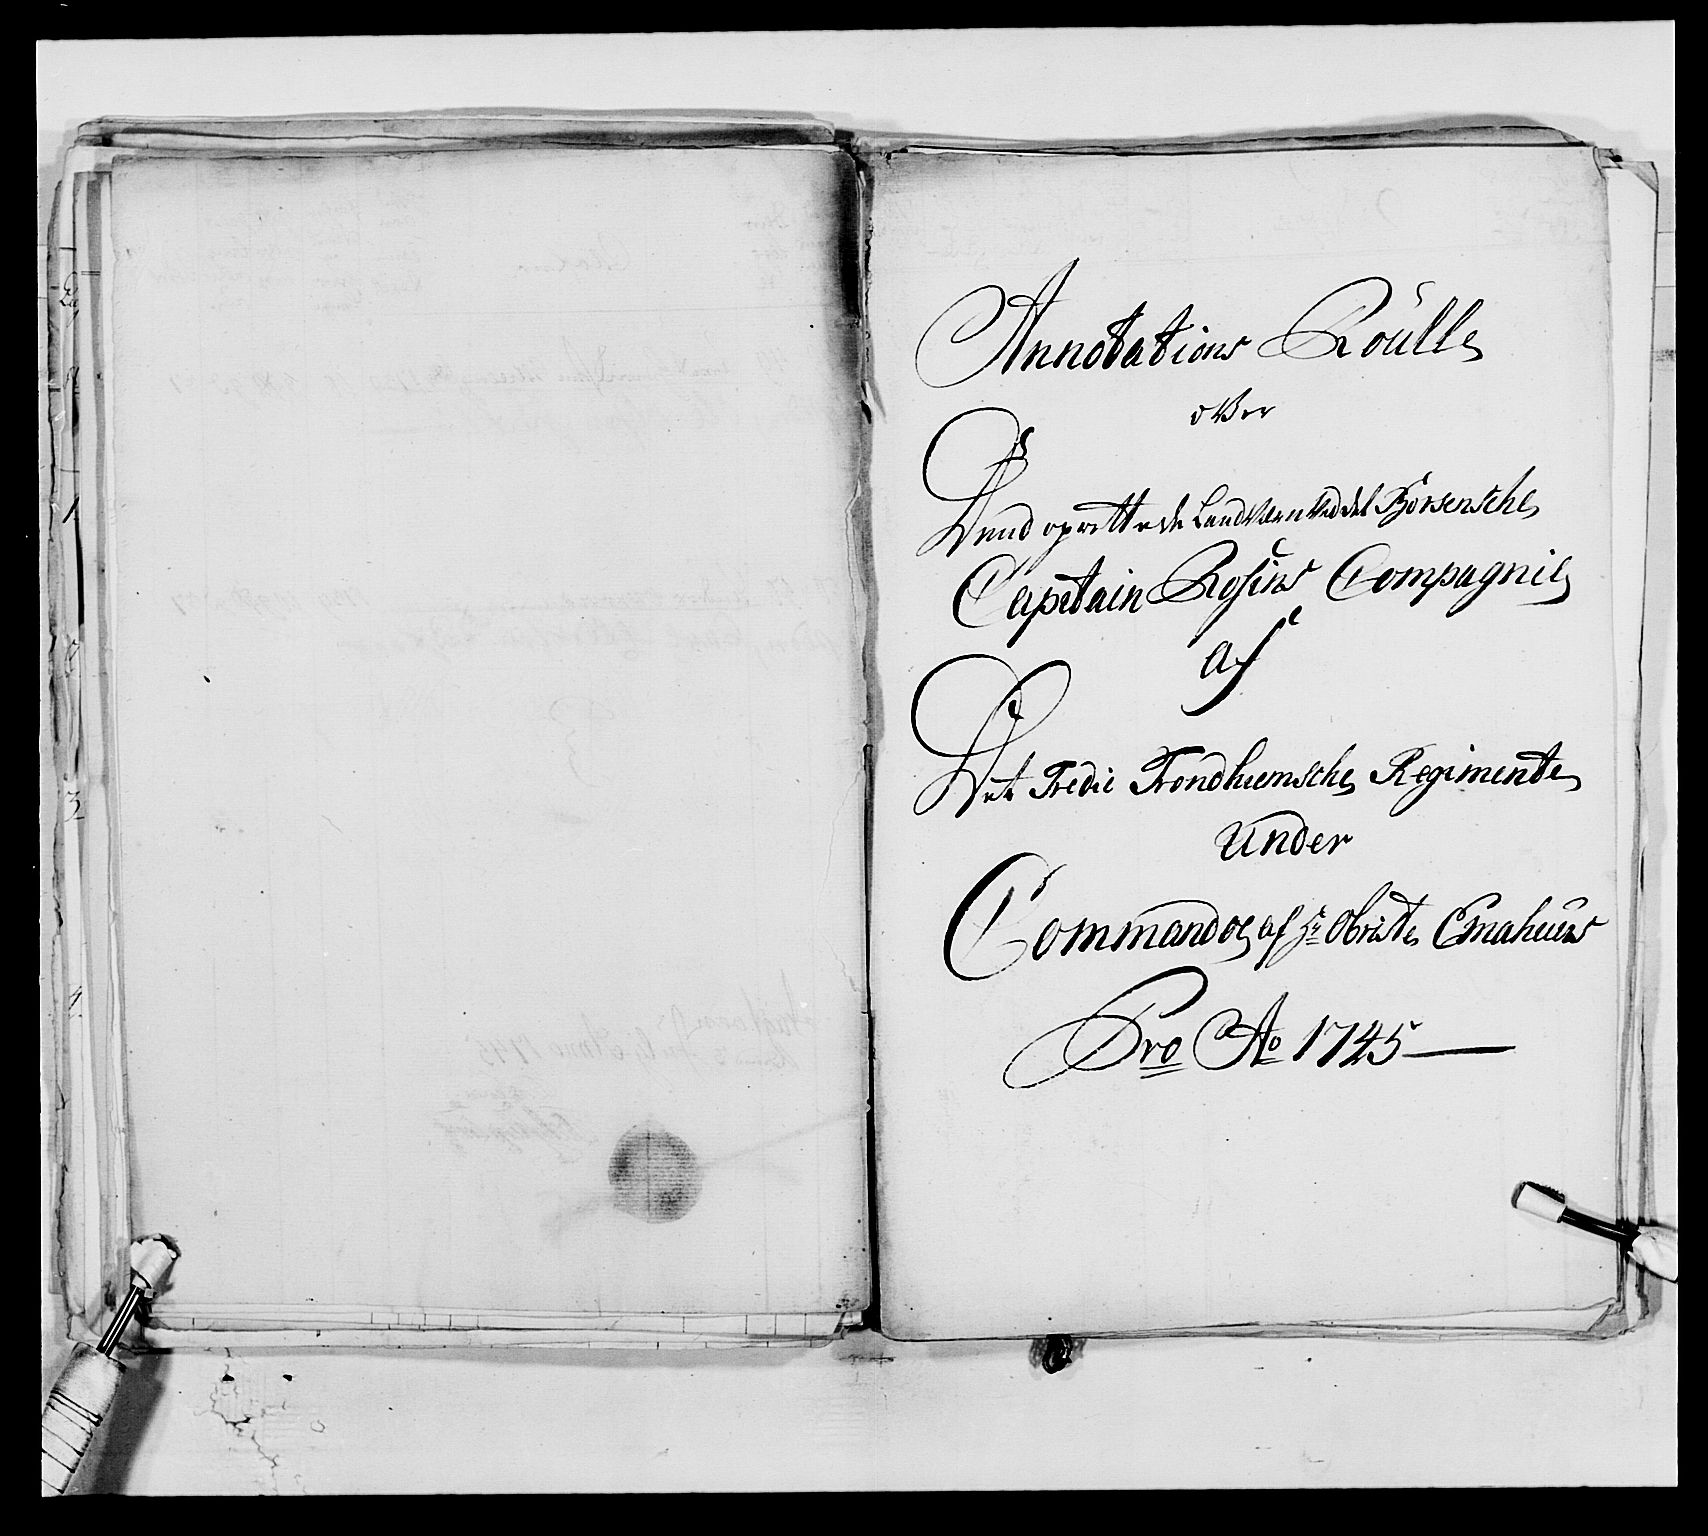 Annotations Roülle
over
Dend oprettede Landværn ved det Börsensche
Capitain Rosins Compagnie
af
Det Tredie Trondhiemsche Regimente
Under
Commandoe af Hr Obriste Emahuus
Pro Ao 1745